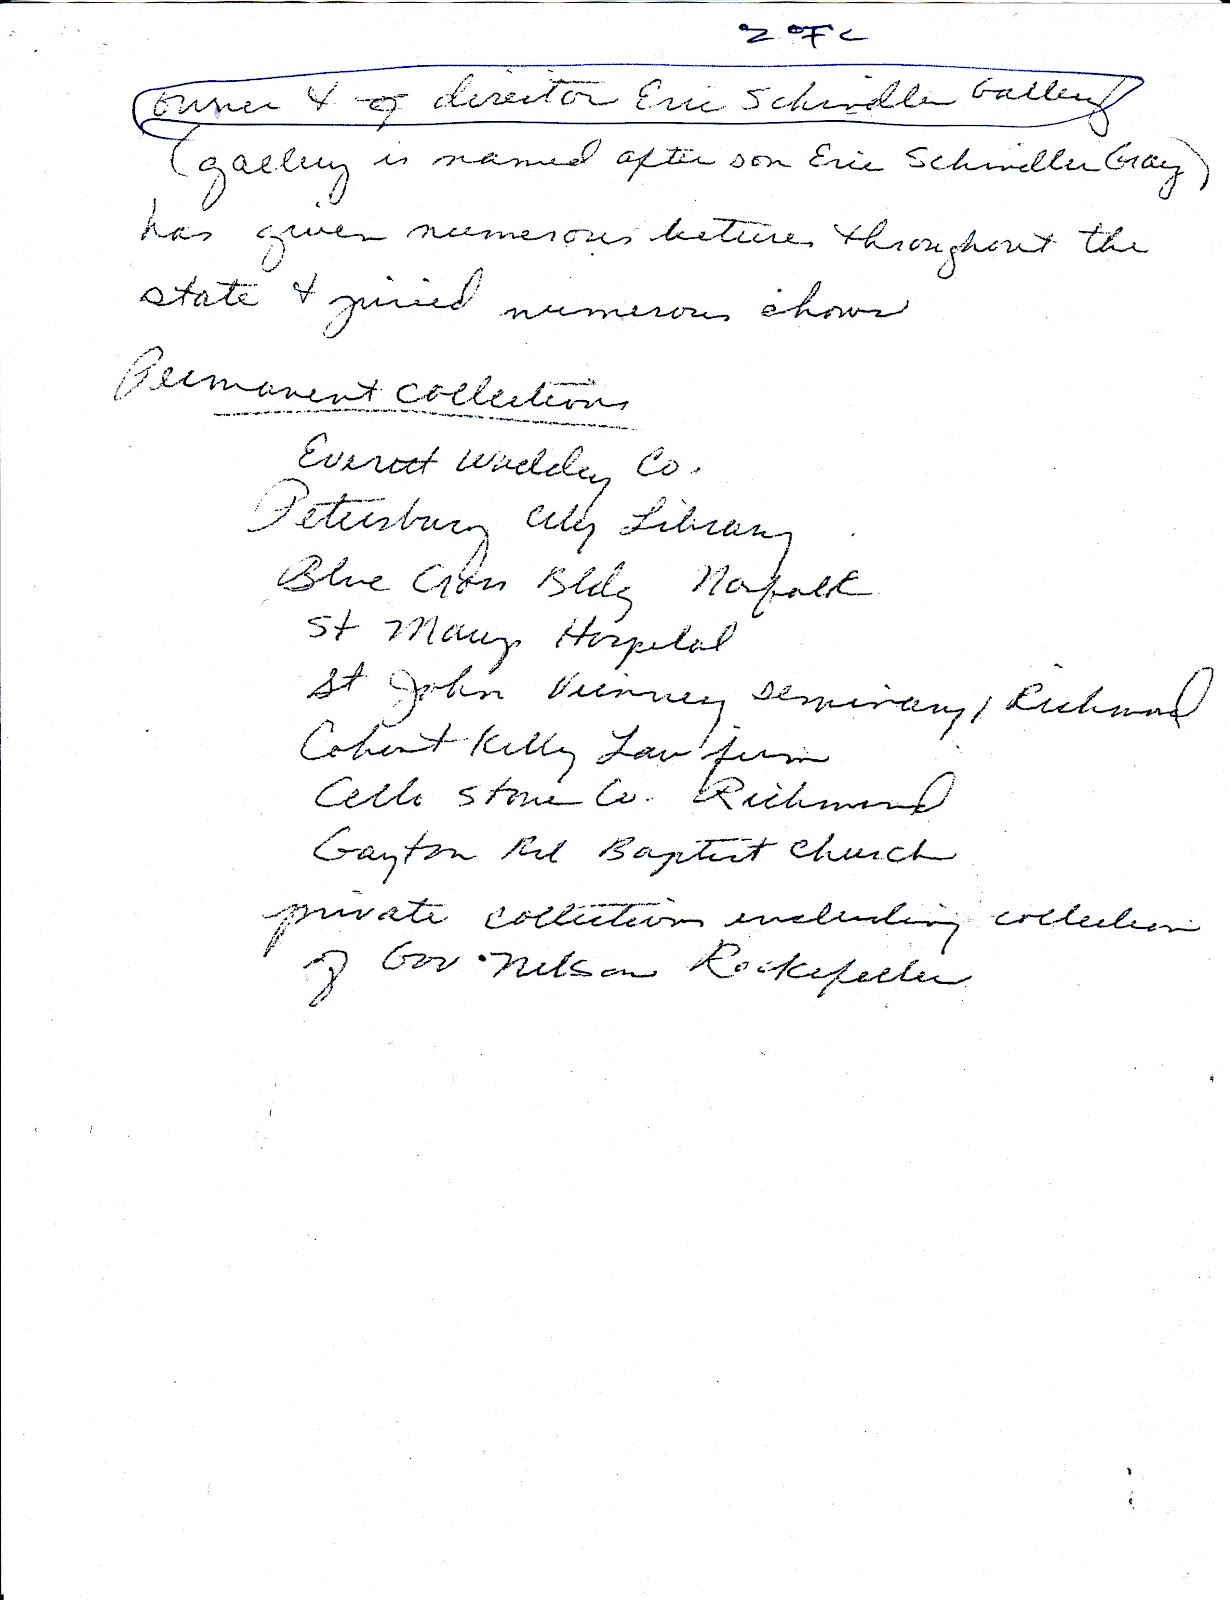 owner & of director Eric Schindler Gallery
(gallery is named after son Eric Schindler Gray)
has given numerous lectures throughout the
state & juried numerous shows
Permanent collections
Everett Waddey Co.
Petersburg City Library
Blue Cross Bldg Norfolk
St Marys Hospital
St John Vianney Seminary, Richmond
Kelly Law firm
Cello Stone Co. Richmond
Gayton Rd Baptist Church
private collections including collection
of Gov. Nelson Rockefeller